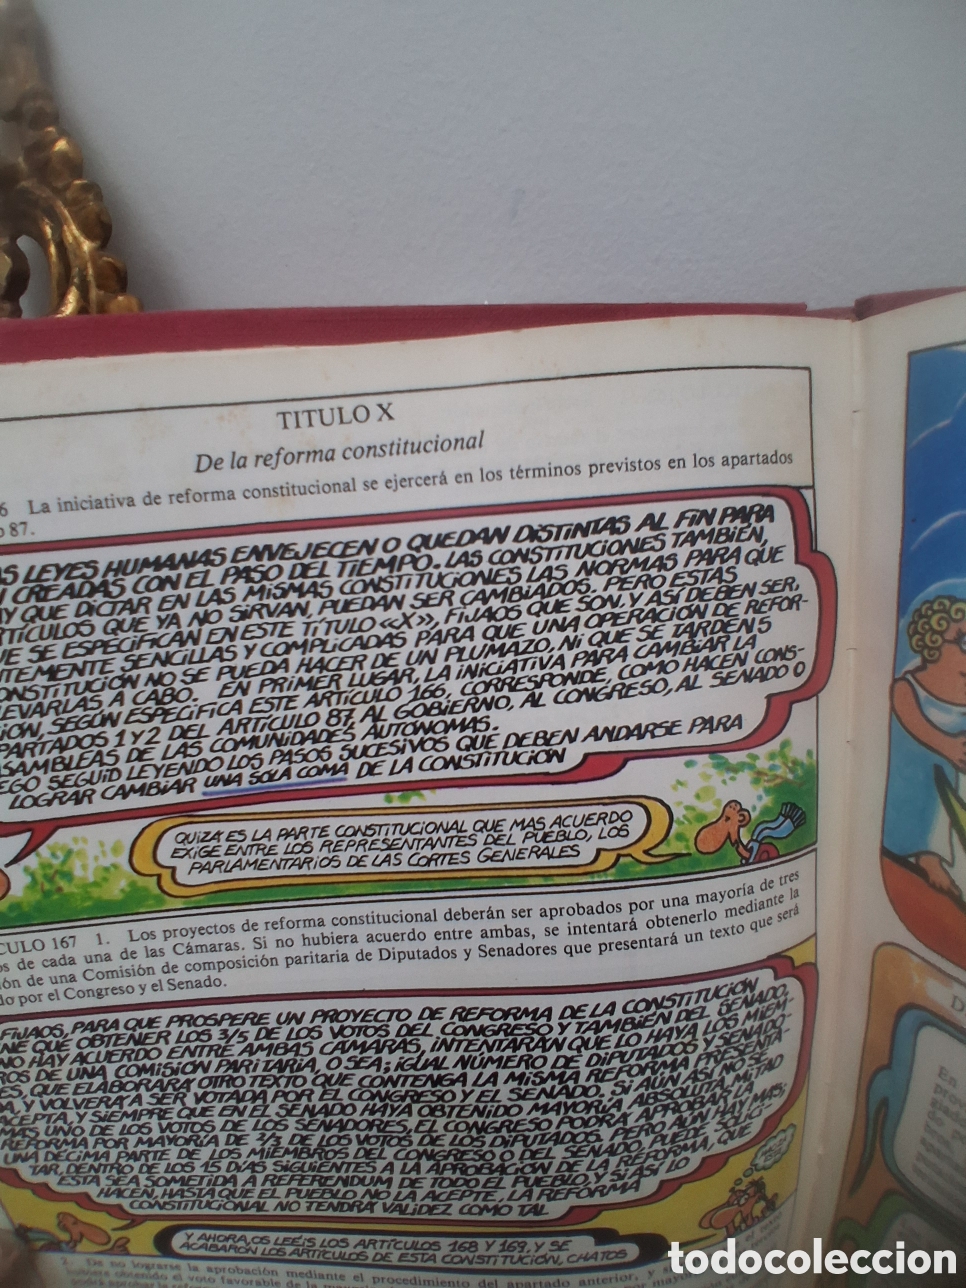 TITULO X
De la reforma constitucional
6 La iniciativa de reforma constitucional se ejercerá en los términos previstos en los apartados
o 87.
S LEYES HUMANAS ENVEJECEN O QUEDAN DISTINTAS AL FIN PARA
CREADAS CON EL PASO DEL TIEMPO. LAS CONSTITUCIONES TAMBIÉN,
Y QUE DICTAR EN LAS MISMAS CONSTITUCIONES LAS NORMAS PARA QUE
RTÍCULOS QUE YA NO SIRVAN, PUEDAN SER CAMBIADOS. PERO ESTAS
UE SE ESPECIFICAN EN ESTE TÍTULO «X», FIJAOS QUE SON, Y ASÍ DEBEN SER,
NTEMENTE SENCILLAS Y COMPLICADAS PARA QUE UNA OPERACIÓN DE REFOR-
ONSTITUCIÓN NO SE PUEDA HACER DE UN PLUMAZO, NI QUE SE TARDEN 5
LEVARLAS A CABO. EN PRIMER LUGAR, LA INICIATIVA PARA CAMBIAR LA
IÓN, SEGÚN ESPECIFICA ESTE ARTÍCULO 166, CORRESPONDE, COMO HACEN CONS-
PARTADOS 1 Y 2 DEL ARTÍCULO 87, AL GOBIERNO, AL CONGRESO, AL SENADO O
SAMBLEAS DE LAS COMUNIDADES AUTÓNOMAS.
EGO SEGUID LEYENDO LOS PASOS SUCESIVOS QUE DEBEN ANDARSE PARA
LOGRAR CAMBIAR UNA SOLA COMA DE LA CONSTITUCIÓN
QUIZÁ ES LA PARTE CONSTITUCIONAL QUE MAS ACUERDO
EXIGE ENTRE LOS REPRESENTANTES DEL PUEBLO, LOS
PARLAMENTARIOS DE LAS CORTES GENERALES
CULO 167 1. Los proyectos de reforma constitucional deberán ser aprobados por una mayoría de tres
os de cada una de las Cámaras. Si no hubiera acuerdo entre ambas, se intentará obtenerlo mediante la
ión de una Comisión de composición paritaria de Diputados y Senadores que presentará un texto que será
do por el Congreso y el Senado.
FIJAOS, PARA QUE PROSPERE UN PROYECTO DE REFORMA DE LA CONSTITUCIÓN
NE QUE OBTENER LOS 3/5 DE LOS VOTOS DEL CONGRESO Y TAMBIÉN DEL SENADO.
NO HAY ACUERDO ENTRE AMBAS CÁMARAS, INTENTARÁN QUE LO HAYA LOS MIEM-
ROS DE UNA COMISIÓN PARITARIA, O SEA; IGUAL NÚMERO DE DIPUTADOS Y SENADO-
ES, QUE ELABORARÁ OTRO TEXTO QUE CONTENGA LA MISMA REFORMA PRESENTA
DA, Y VOLVERÁ A SER VOTADA POR EL CONGRESO Y EL SENADO. SI AÚN ASÍ NO SE
CEPTA, Y SIEMPRE QUE EN EL SENADO HAYA OBTENIDO MAYORÍA ABSOLUTA, MITAD
MAS UNO DE LOS VOTOS DE LOS SENADORES, EL CONGRESO PODRÁ APROBAR LA
REFORMA POR MAYORÍA DE 2/3 DE LOS VOTOS DE LOS DIPUTADOS. PERO AÚN HAY MÁS;
UNA DÉCIMA PARTE DE LOS MIEMBROS DEL CONGRESO O DEL SENADO, PUEDE SOLICI-
TAR, DENTRO DE LOS 15 DÍAS SIGUIENTES A LA APROBACIÓN DE LA REFORMA, QUE
ESTA SEA SOMETIDA A REFERENDUM DE TODO EL PUEBLO, Y SI ASÍ LO
HACEN, HASTA QUE EL PUEBLO NO LA ACEPTE, LA REFORMA
CONSTITUCIONAL NO TENDRÁ VALIDEZ COMO TAL
Y AHORA, OS LEÉIS LOS ARTÍCULOS 168 Y 169, Y SE
ACABARON LOS ARTÍCULOS DE ESTA CONSTITUCIÓN, CHATOS
2. De no lograrse la aprobación mediante el procedimiento del apartado anterior, y
hubiere obtenido el voto favorable de la
D
En
todocoleccion